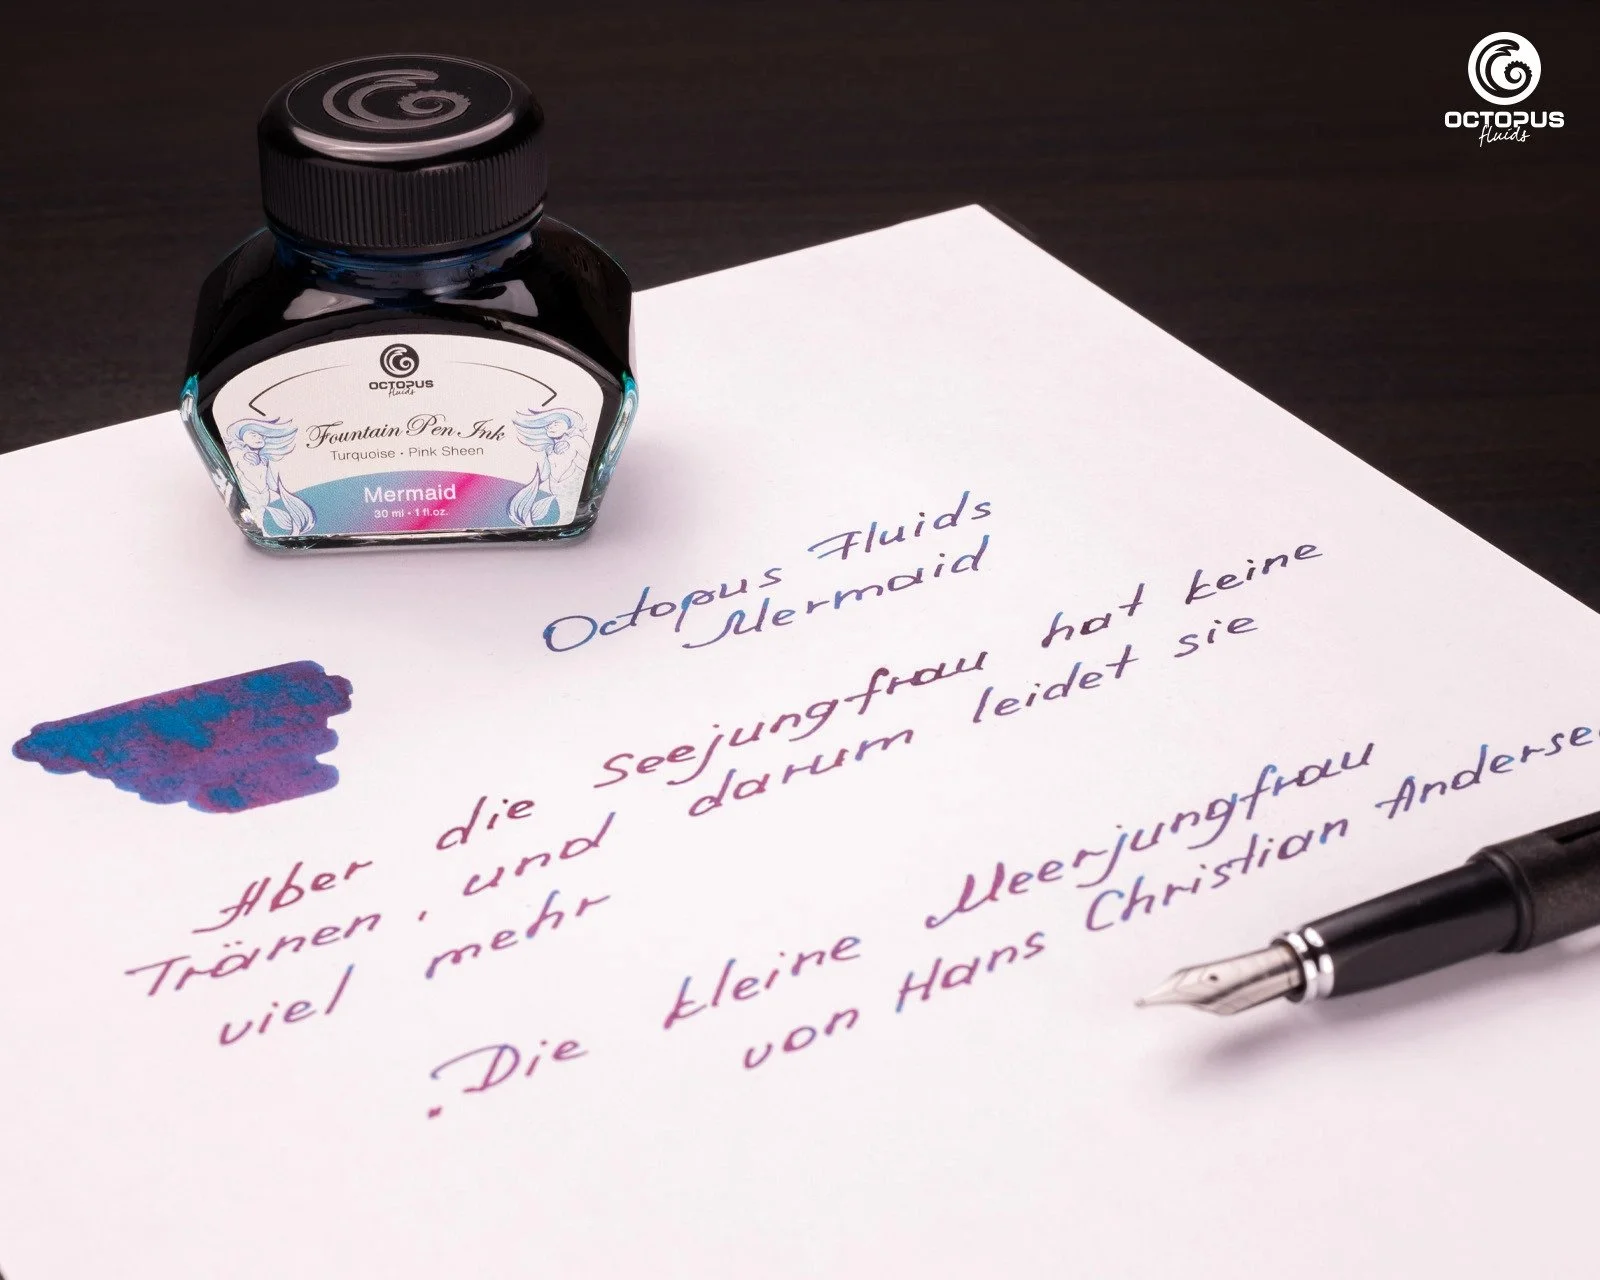 OCTOPUS
fluids
OCTOPUS
fluids
Fountain Pen Ink
Turquoise • Pink Sheen
Mermaid
30 ml • 1 fl.oz.
Octopus Fluids
Mermaid
Aber die Seejungfrau hat keine
Tränen, und darum leidet sie
viel mehr
Die kleine Meerjungfrau
von Hans Christian Anderse